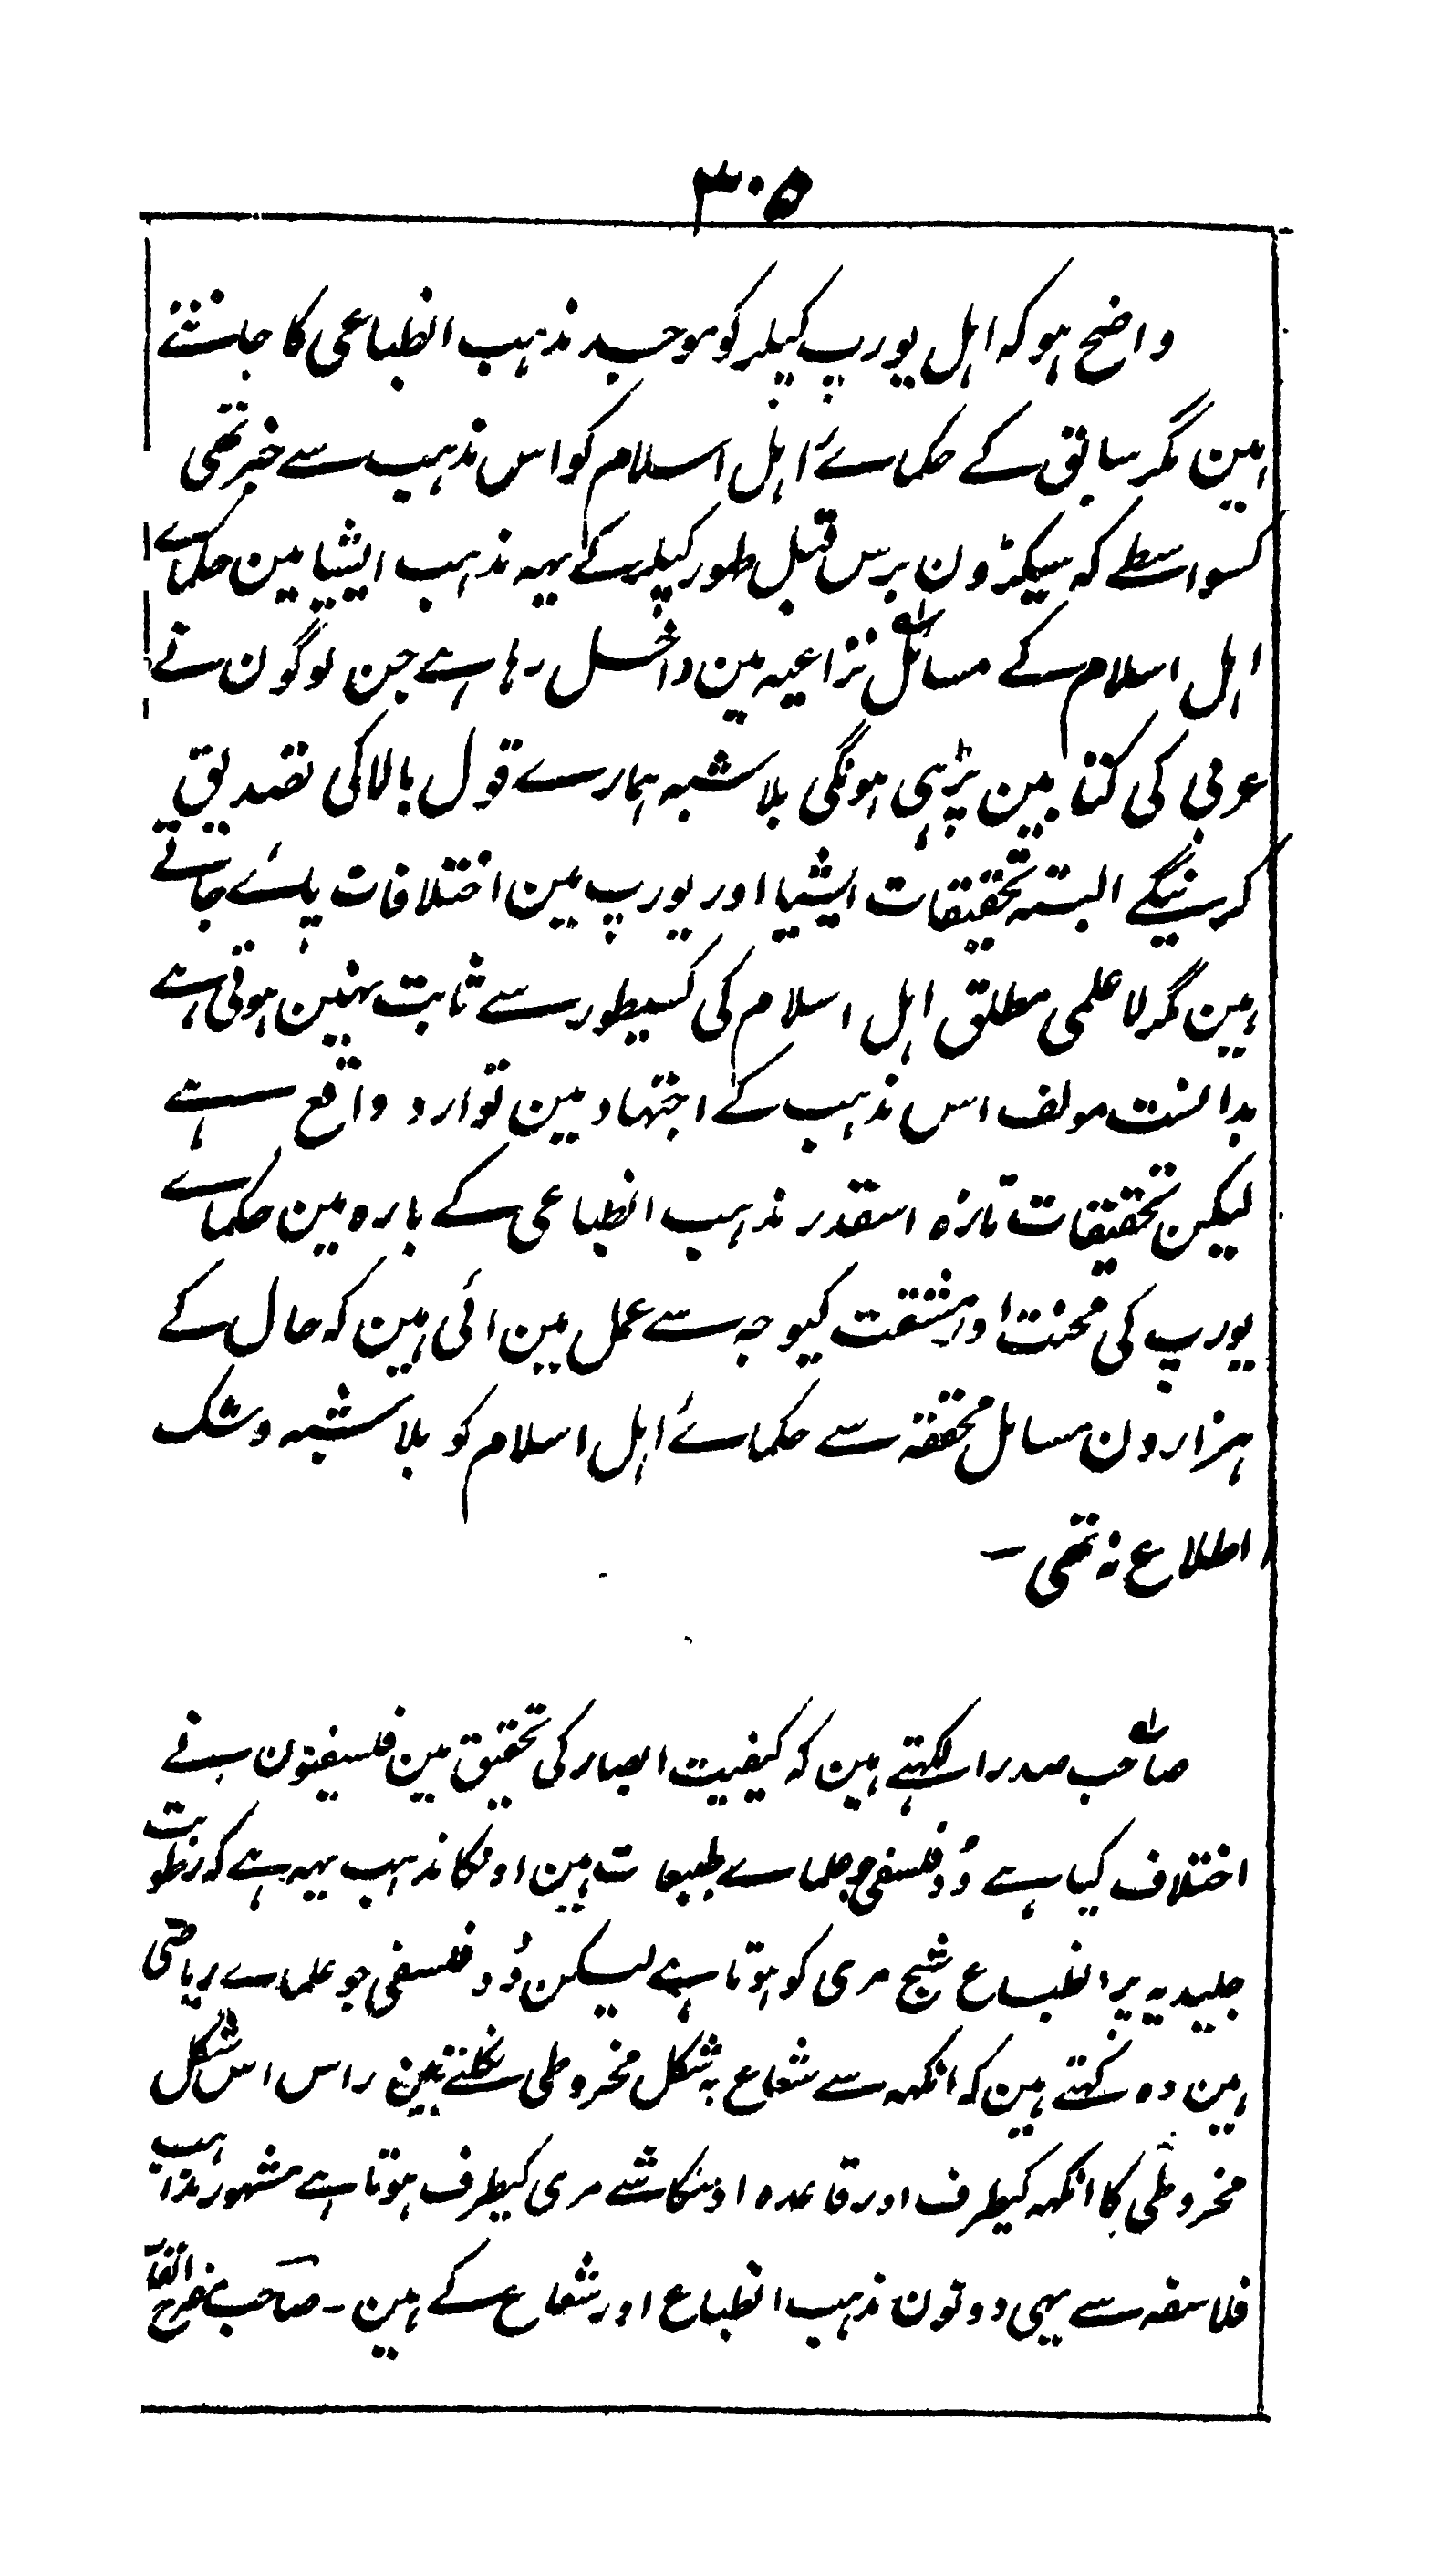 ۳۰۵
واضح ہو کہ اہل یورپ کیپلر کو موجد مذہب انطباعی کا جانتے
ہین مگر سابق کے حکمائے اہل اسلام کو اس مذہب سے خبر تھی
کسواسطے کہ سیکڑون برس قبل طور کیپلر کے یہہ مذہب ایشیا مین حکمائے
اہل اسلام کے مسائل نزاعیہ مین داخل رہا ہے جن لوگون نے
عربی کی کتابین پڑہی ہونگی بلا شبہ ہمارے قول بالا کی تصدیق
کرینگے البتہ تحقیقات ایشیا اور یورپ مین اختلافات پائے جاتے
ہین مگر لا علمی مطلق اہل اسلام کی کسیطور سے ثابت نہین ہوتی ہے
بدانست مولف اس مذہب کے اجتہاد مین توارد واقع ہے
لیکن تحقیقات تازہ اسقدر مذہب انطباعی کے بارہ مین حکمائے
یورپ کی محنت اور مشقت کیوجہ سے عمل مین ائی ہین کہ حال کے
ہزارون مسائل محققہ سے حکمائے اہل اسلام کو بلا شبہ و شک
اطلاع نہ تھی ۔
صاحب صدرا لکہتے ہین کہ کیفیت ابصار کی تحقیق مین فلسیفیون نے
اختلاف کیا ہے وُہ فلسفی جو علماے طبیعات ہین اونکا مذہب یہہ ہے کہ رطوبت
جلیدیہ پر انطباع شبح مری کو ہوتا ہے لیکن وُہ فلسفی جو علماے ریاضی
ہین وہ کہتے ہین کہ انکہہ سے شعاع بہ شکل مخروطی نکلتے ہین راس اس شکل
مخروطی کا انکہہ کیطرف اور قاعدہ اونکا شے مری کیطرف ہوتا ہے مشہور مذاہب
فلاسفہ سے یہی دونون مذہب انطباع اور شعاع کے ہین ۔ صاحب